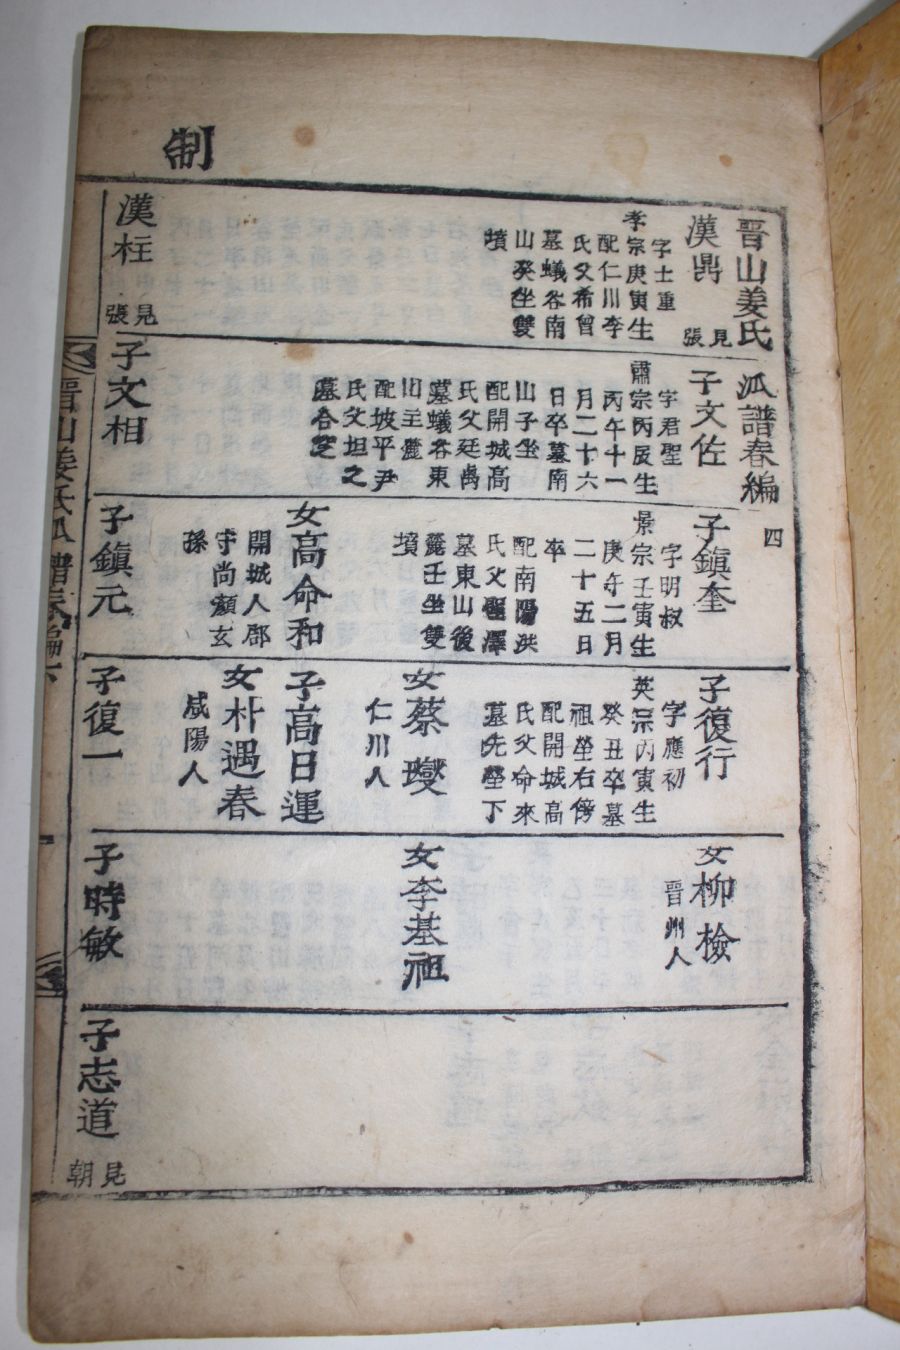 制
晋山姜氏
瓜譜春編
四
漢鼎
見張
字士重
孝宗庚寅生
配仁川李
氏父希曾
墓蟻谷南
山癸坐雙
墳
漢柱
見張
子文佐
字君聖
肅宗丙辰生
丙午十一
月二十六
日卒墓南
山子坐
配開城高
氏父廷禼
墓蟻谷東
山主麓
配坡平尹
氏父坦之
墓谷空
子文相
子鎭奎
字明叔
景宗壬寅生
庚午二月
二十五日
卒
配南陽洪
氏父聖澤
墓東山後
麓壬坐雙
墳
女高命和
開城人郡
守尚顏玄
孫
子鎭元
子復行
字應初
英宗丙寅生
癸丑卒墓
祖塋右傍
配開城高
氏父命來
墓先塋下
女蔡㸅
仁川人
子高日運
女朴遇春
咸陽人
子復一
女柳檢
晋州人
女李基祖
子時敏
子志道
見朝
晋山姜氏瓜譜春編